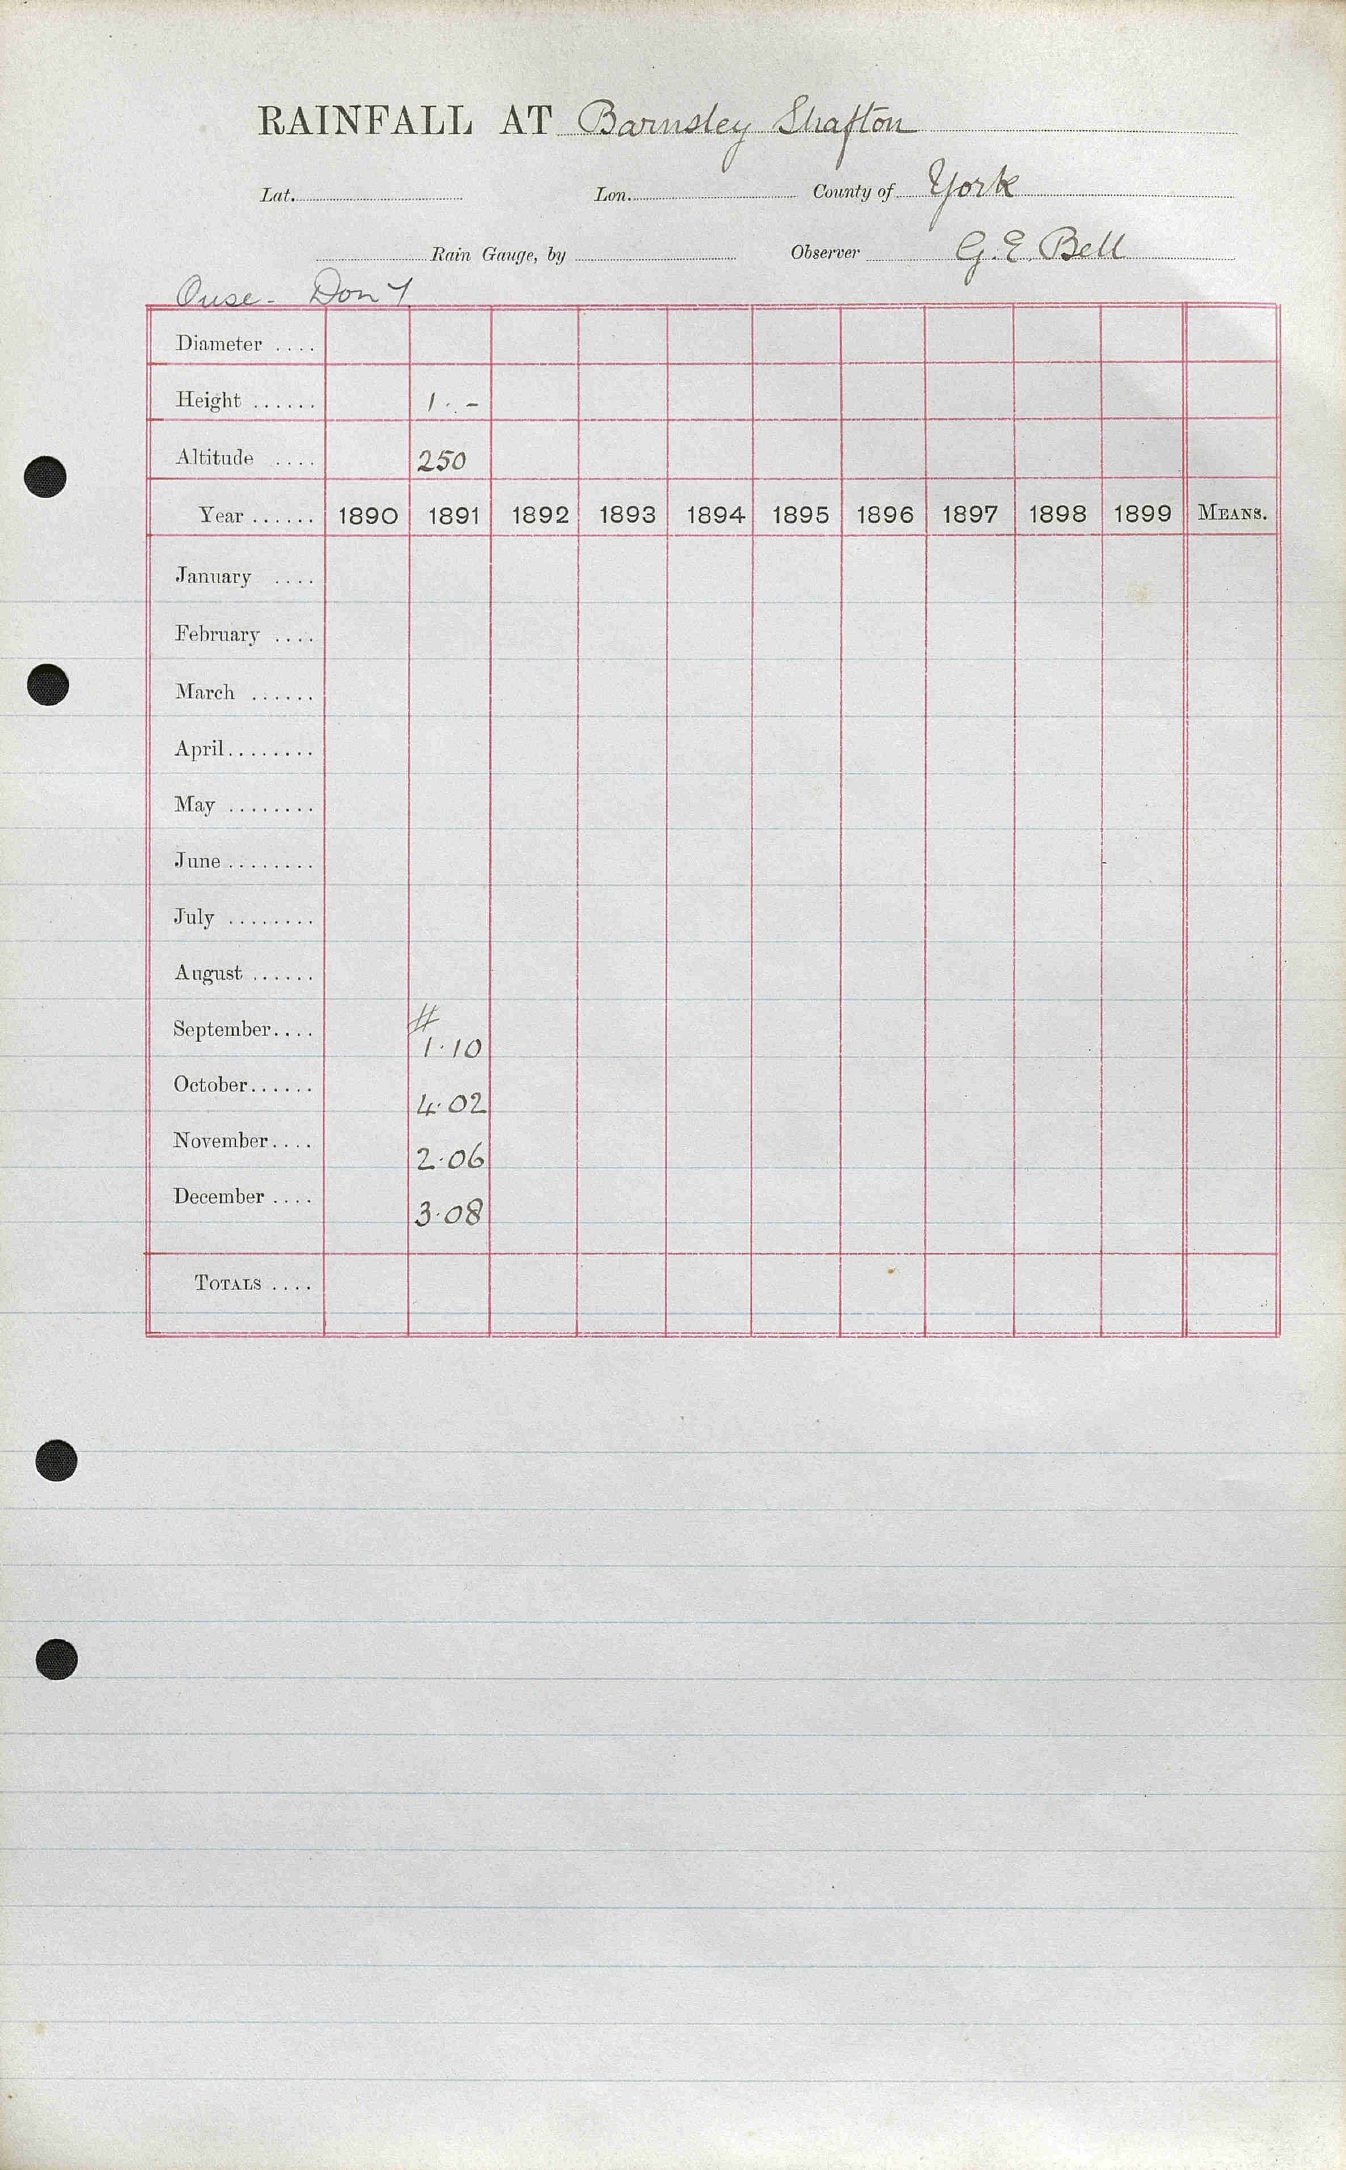 RAINFALL AT Barnsley Shafton
Lat. Lon. County of York
Rain Gauge, by Observer G. E. Bell
Ouse - Don 7
Diameter ....
Height ...... 1 . -
Altitude .... 250
Year ...... 1890 1891 1892 1893 1894 1895 1896 1897 1898 1899 MEANS.
January ....
February ....
March ......
April ........
May ........
June ........
July ........
August ......
September .... # 1.10
October ...... 4.02
November .... 2.06
December .... 3.08
TOTALS ....